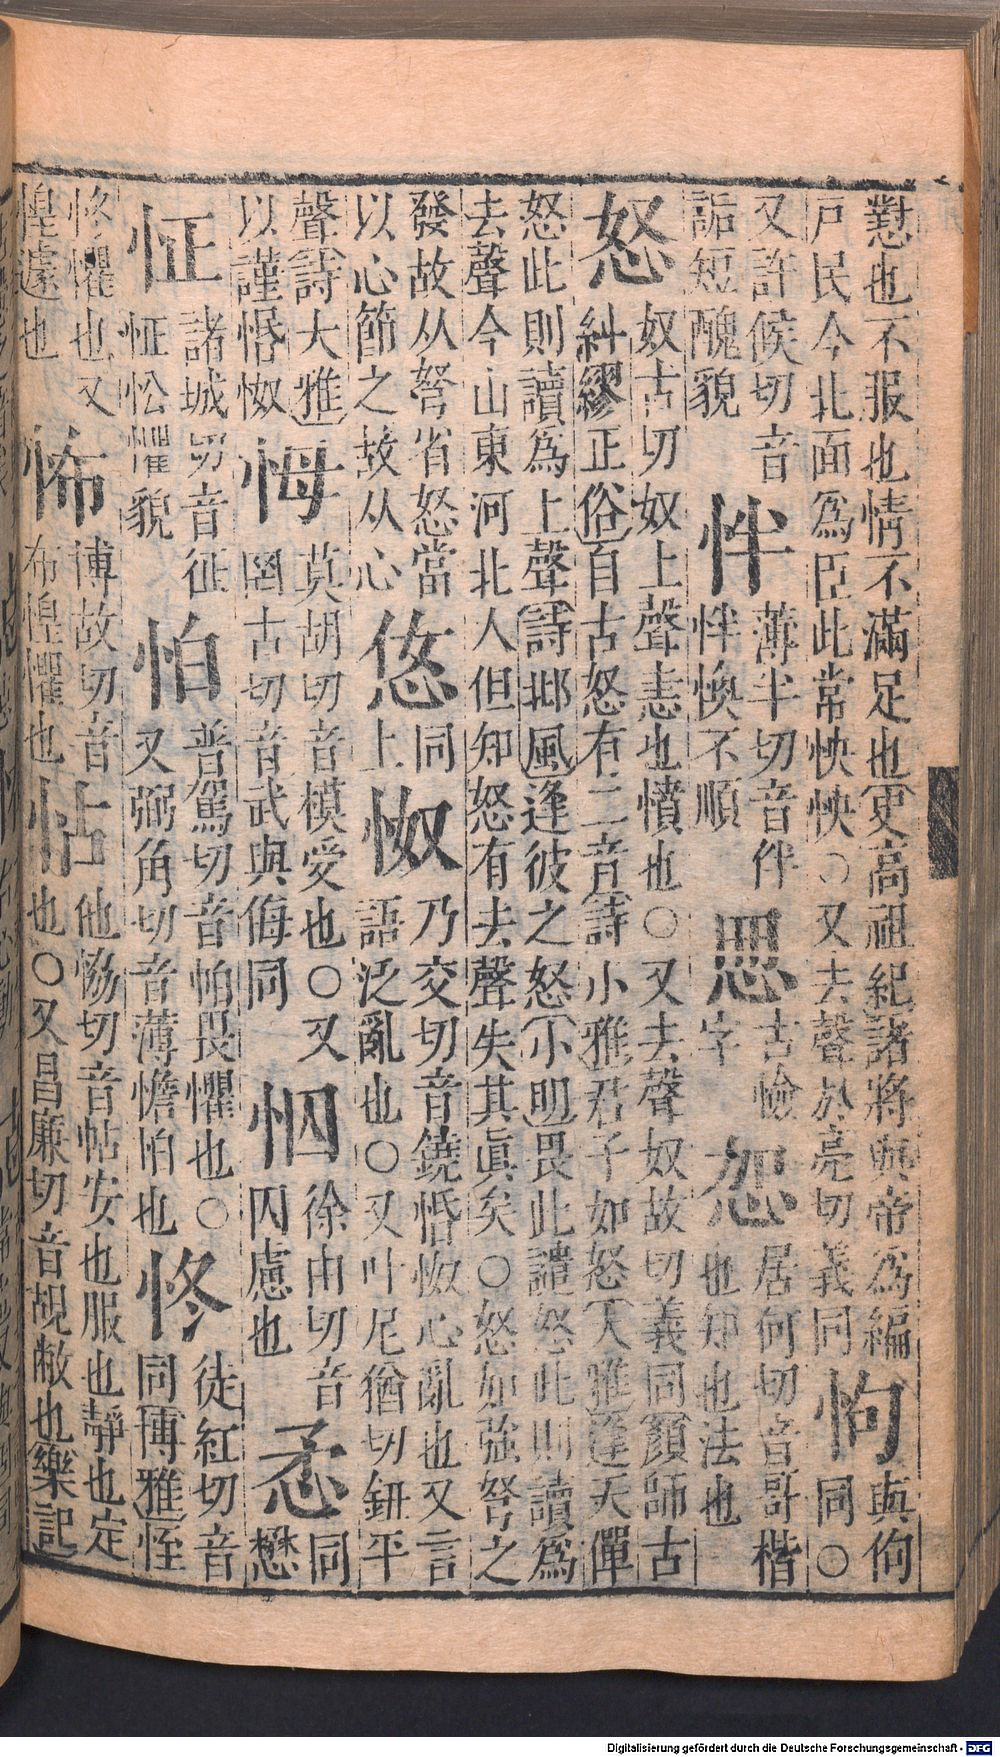 懟也不服也情不滿足也史高祖紀諸將與帝爲編
戸民今北面爲臣此常怏怏○又去聲於亮切義同
怐
與佝
同○
又許候切音
詬短醜貌
怑
薄半切音伴
怑愌不順
古憸
字
居何切音哥楷
也知也法也
怒
奴古切奴上聲恚也憤也○又去聲奴故切義同顔師古
糾繆正俗自古怒有二音詩小雅君子如怒大雅逢天僤
怒此則讀爲上聲詩邶風逢彼之怒小明畏此譴怒此則讀爲
去聲今山東河北人但知怒有去聲失其眞矣○怒如強弩之
發故从弩省怒當
以心節之故从心
同
上
怓
乃交切音鐃惛怓心亂也又言
語泛亂也○又叶尼猶切鈕平
聲詩大雅
以謹惽怓
莫胡切音模愛也○又
罔古切音武與侮同
徐由切音
囚慮也
同
懋
怔
諸城切音征
怔忪懼貌
怕
普駕切音帕畏懼也○
又弼角切音薄憺怕也
㤏
徒紅切音
同博雅恎
㤏懼也又
惶遽也
怖
博故切音
布惶懼也
怗
他協切音帖安也服也靜也定
也○又昌廉切音覘敝也樂記
Digitalisierung gefördert durch die Deutsche Forschungsgemeinschaft - DFG